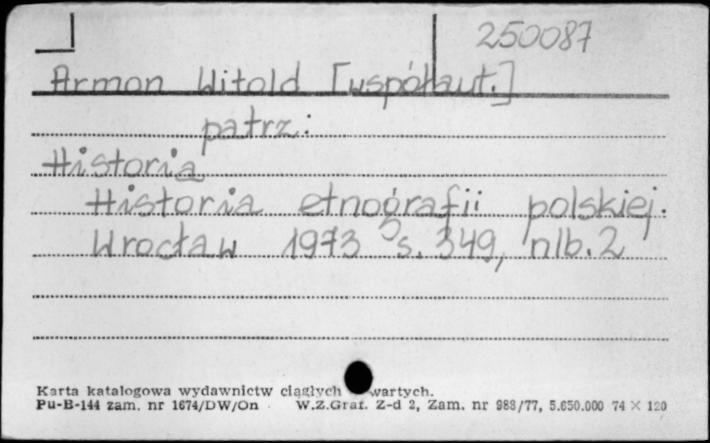 250087
Armon Witold [współaut.]
patrz:
Historia
Historia etnografii polskiej.
Wrocław 1973 s. 349, nlb. 2
Karta katalogowa wydawnictw ciągłych wartych.
Pu-B-144 zam. nr 1674/DW/On W.Z.Graf. Z-d 2, Zam. nr 988/77, 5.650.000 74 × 120